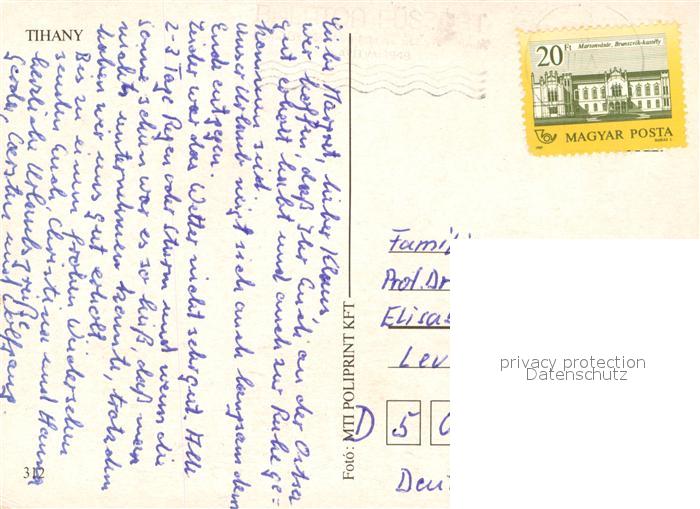 TIHANY
Liebe Margret, lieber Klaus,
wir hoffen, daß Ihr Euch an der Ostsee
gut erholt habt und auch zur Ruhe ge-
kommen seid.
Unser Urlaub neigt sich auch langsam dem
Ende entgegen.
Leider war das Wetter nicht sehr gut. Alle
2-3 Tage Regen oder Sturm und wenn die
Sonne schien war es so heiß, daß man
nichts unternehmen konnte, trotzdem
haben wir uns gut erholt.
Bis zu einem frohen Wiedersehen
senden Euch Christina und Hanna
herzliche Urlaubsgrüße
Gerda, Carsten und Wolfgang.
312
Fotó: MTI POLIPRINT KFT
20 Ft
Martonvásár, Brunszvik-kastély
MAGYAR POSTA
Famili
Prof. Dr
Elisa
Lev
D 5 0
Deut
privacy protection
Datenschutz